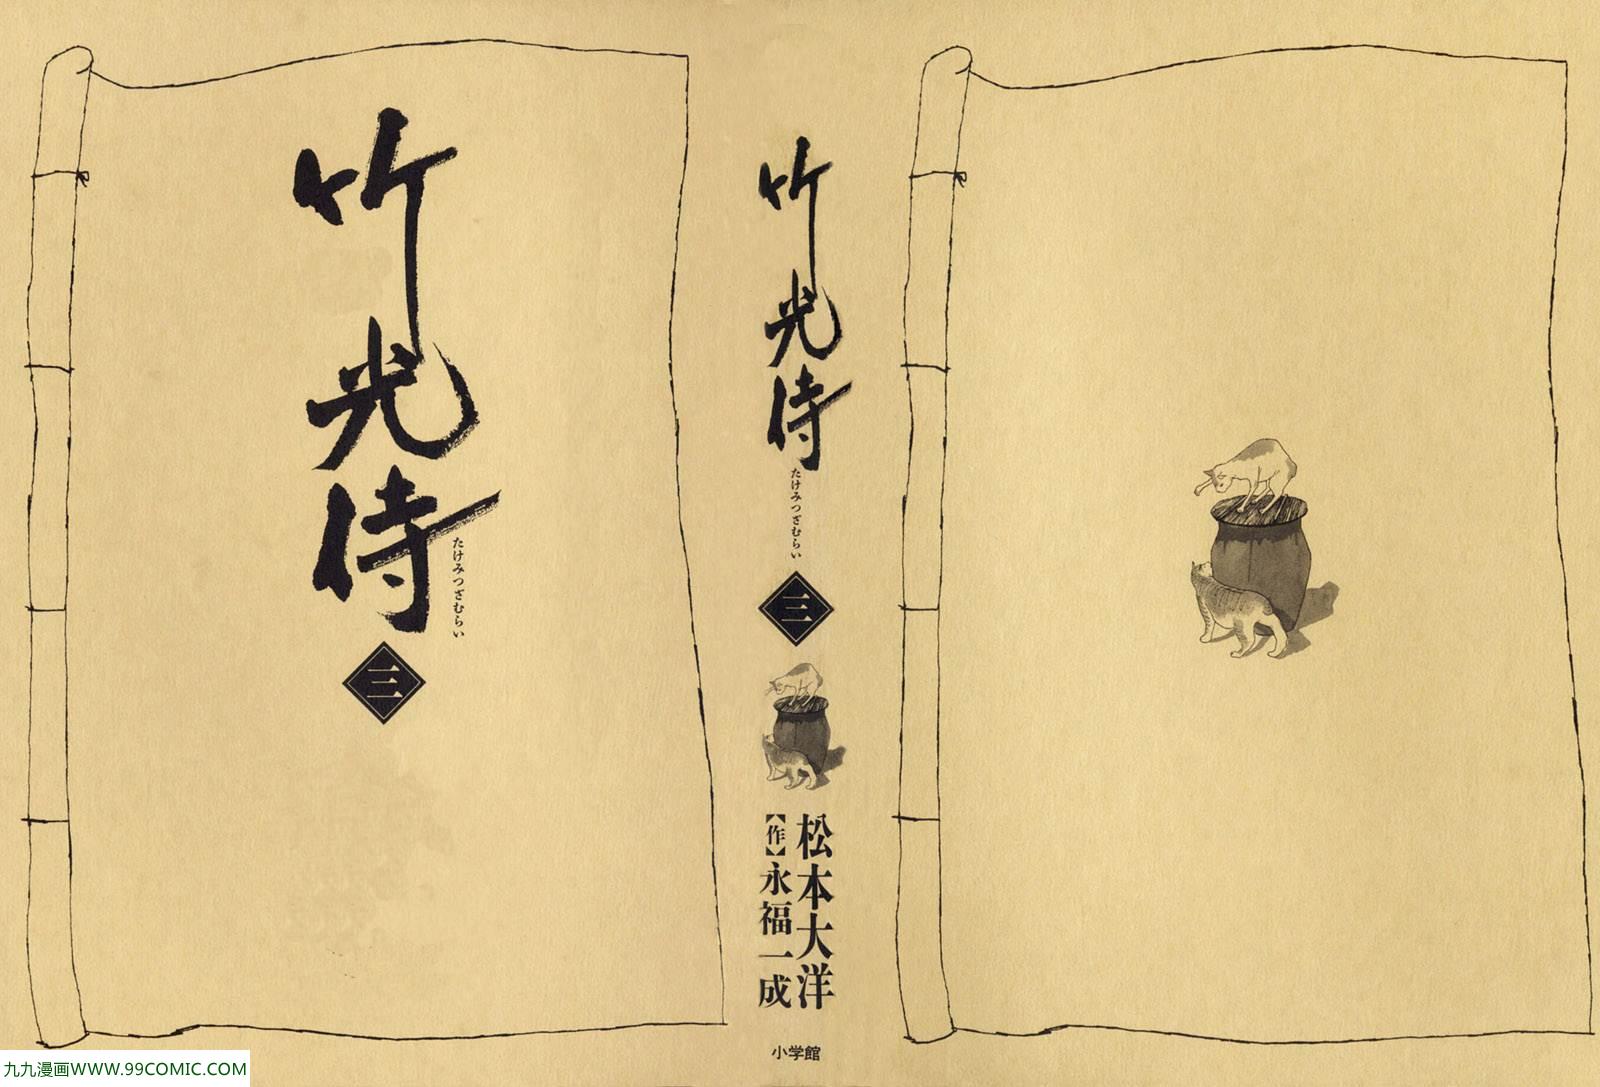 竹光侍
たけみつざむらい
三
竹光侍
たけみつざむらい
三
松本大洋
【作】永福一成
小学館
九九漫画WWW.99COMIC.COM